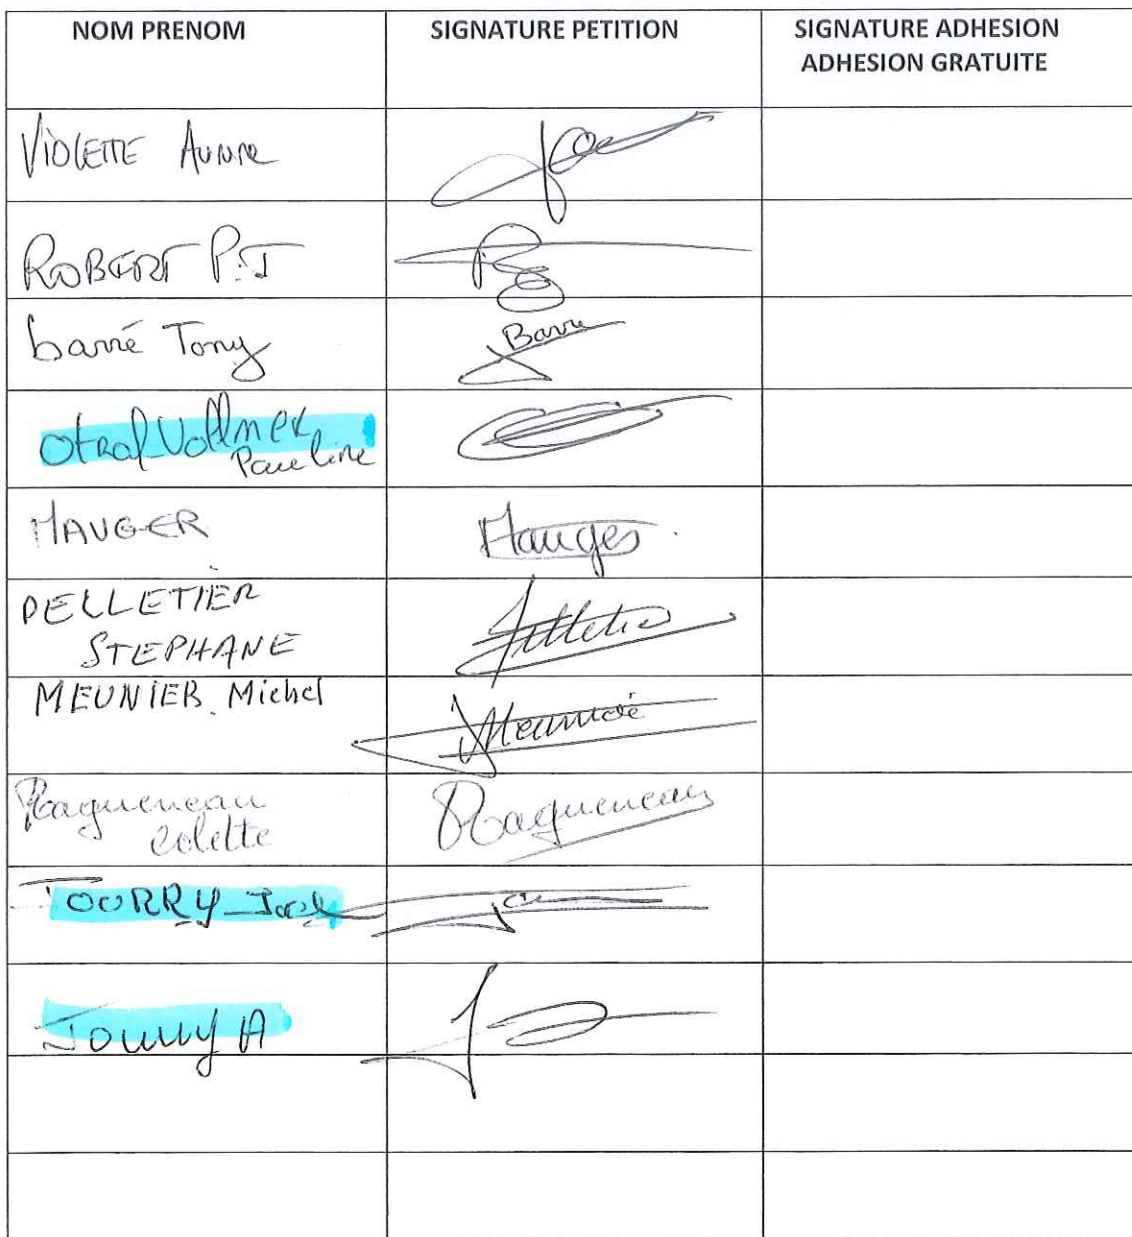 NOM PRENOM
SIGNATURE PETITION
SIGNATURE ADHESION
ADHESION GRATUITE
VIOLETTE
ROBERT P.J
barré Tony
Barré
Vollmer
Pauline
MAUGER
Mauger
PELLETIER
STEPHANE
Pelletier
MEUNIER Michel
Meunier
Ragueneau
Colette
Ragueneau
JOURRY
A